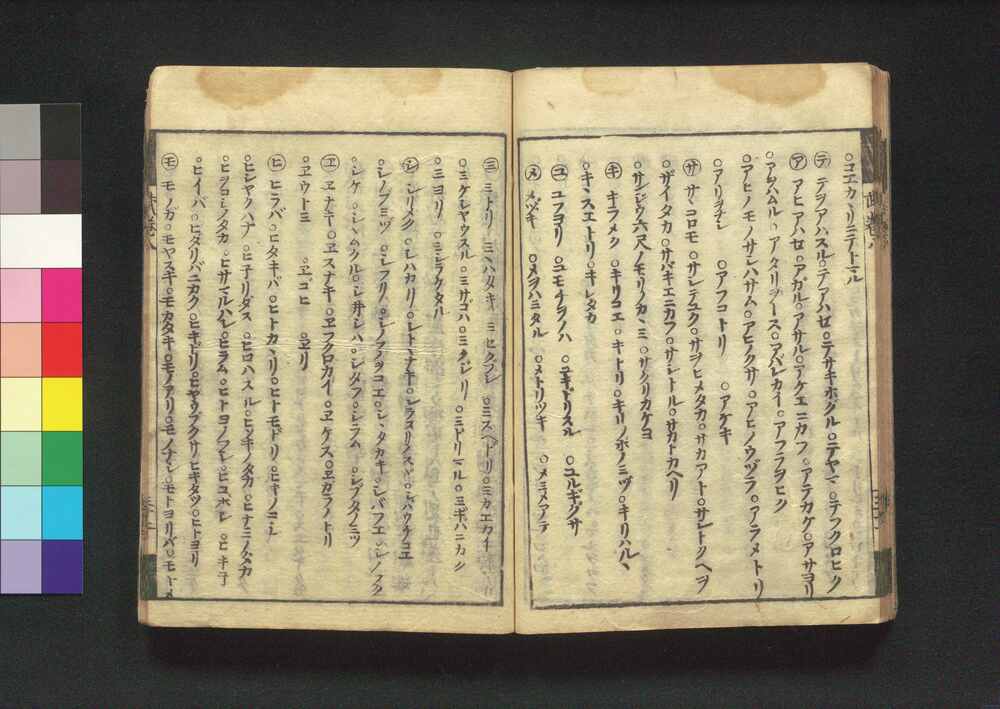 ○コエカヽリニテトマル
㋢ テヲアハスル○テアハセ○テサキホグル○テヤマ○テフクロヒク
㋐ アヒアハセ○アガル○アサル○アケエニカフ○アテカケ○アサヨリ
○アツムル○アタリヲース○アバレカイ○アフラヲヒク
○アヒノモノサシハサム○アヒノクサ○アヒノウヅラ○アラメトリ
○アリヲナシ ○アフコトリ ○アケキ
㋚ サヽコロモ○サシテユク○サヲヒメタカ○サカアト○サシトリヘヲ
○サイタカ○サバキエニカフ○サシトル○サカトカヘリ
○サンジウ六尺ノモリノカヽミ○サグリカケヨ
㋖ キフメシ○キリコエ○キトリ○キリノボノミヅ○キリハルヽ
○キヽスエトリ○キレタカ
㋴ ユフヨリ○ユモチヲノハ○ユキトリスル○ユルギグサ
㋱ メヅキ○メヲハミタル○メトリツキ○メミメアテ
㋯ ミトリ ミヽハタキ ミセクフレ○ミスヘトリ○ミカエカイ
○ミケシヤウスル○ミサゴハ○ミクレリ○ミドリマル○ミギハニカシ
○ミヨリ○ミシラケタル
㋛ シリメグ○シハカリ○シトヽナキ○シラスリノスヾ○シハウチコエ
○シノブミツ○シフリ○シノフヲコエ○シヽタカキ○シバフエ○シノフク
○シケ○シヽムクル○シ井シハ○シダフ○シラム○シブタノミツ
ヱ ヱナキ○ヱスナキ○ヱフクロカイ○ヱケス○ヱガラノトリ
○ヱウトミ ○ヱゴヒ ○ヱリ
㋪ ヒラバ○ヒタキバ○ヒトカヽリ○ヒトモドリ○ヒキノコシ
○ヒシヤクハナ○ヒ子リダス○ヒロハスル○ヒツキノタカ○ヒナミノタカ
○ヒツコシノタカ○ヒサマルハレ○ヒラム○ヒトヨノフレ○ヒユホレ○ヒキ子
○ヒイバ○ヒダリバニカク○ヒキドリ○ヒヤウブクサ○ヒギタツ○ヒトヨリ
㋲ モノカ○モヤスキ○モカタキ○モノアリ○モノナシ○モトヨリバ○モトメ